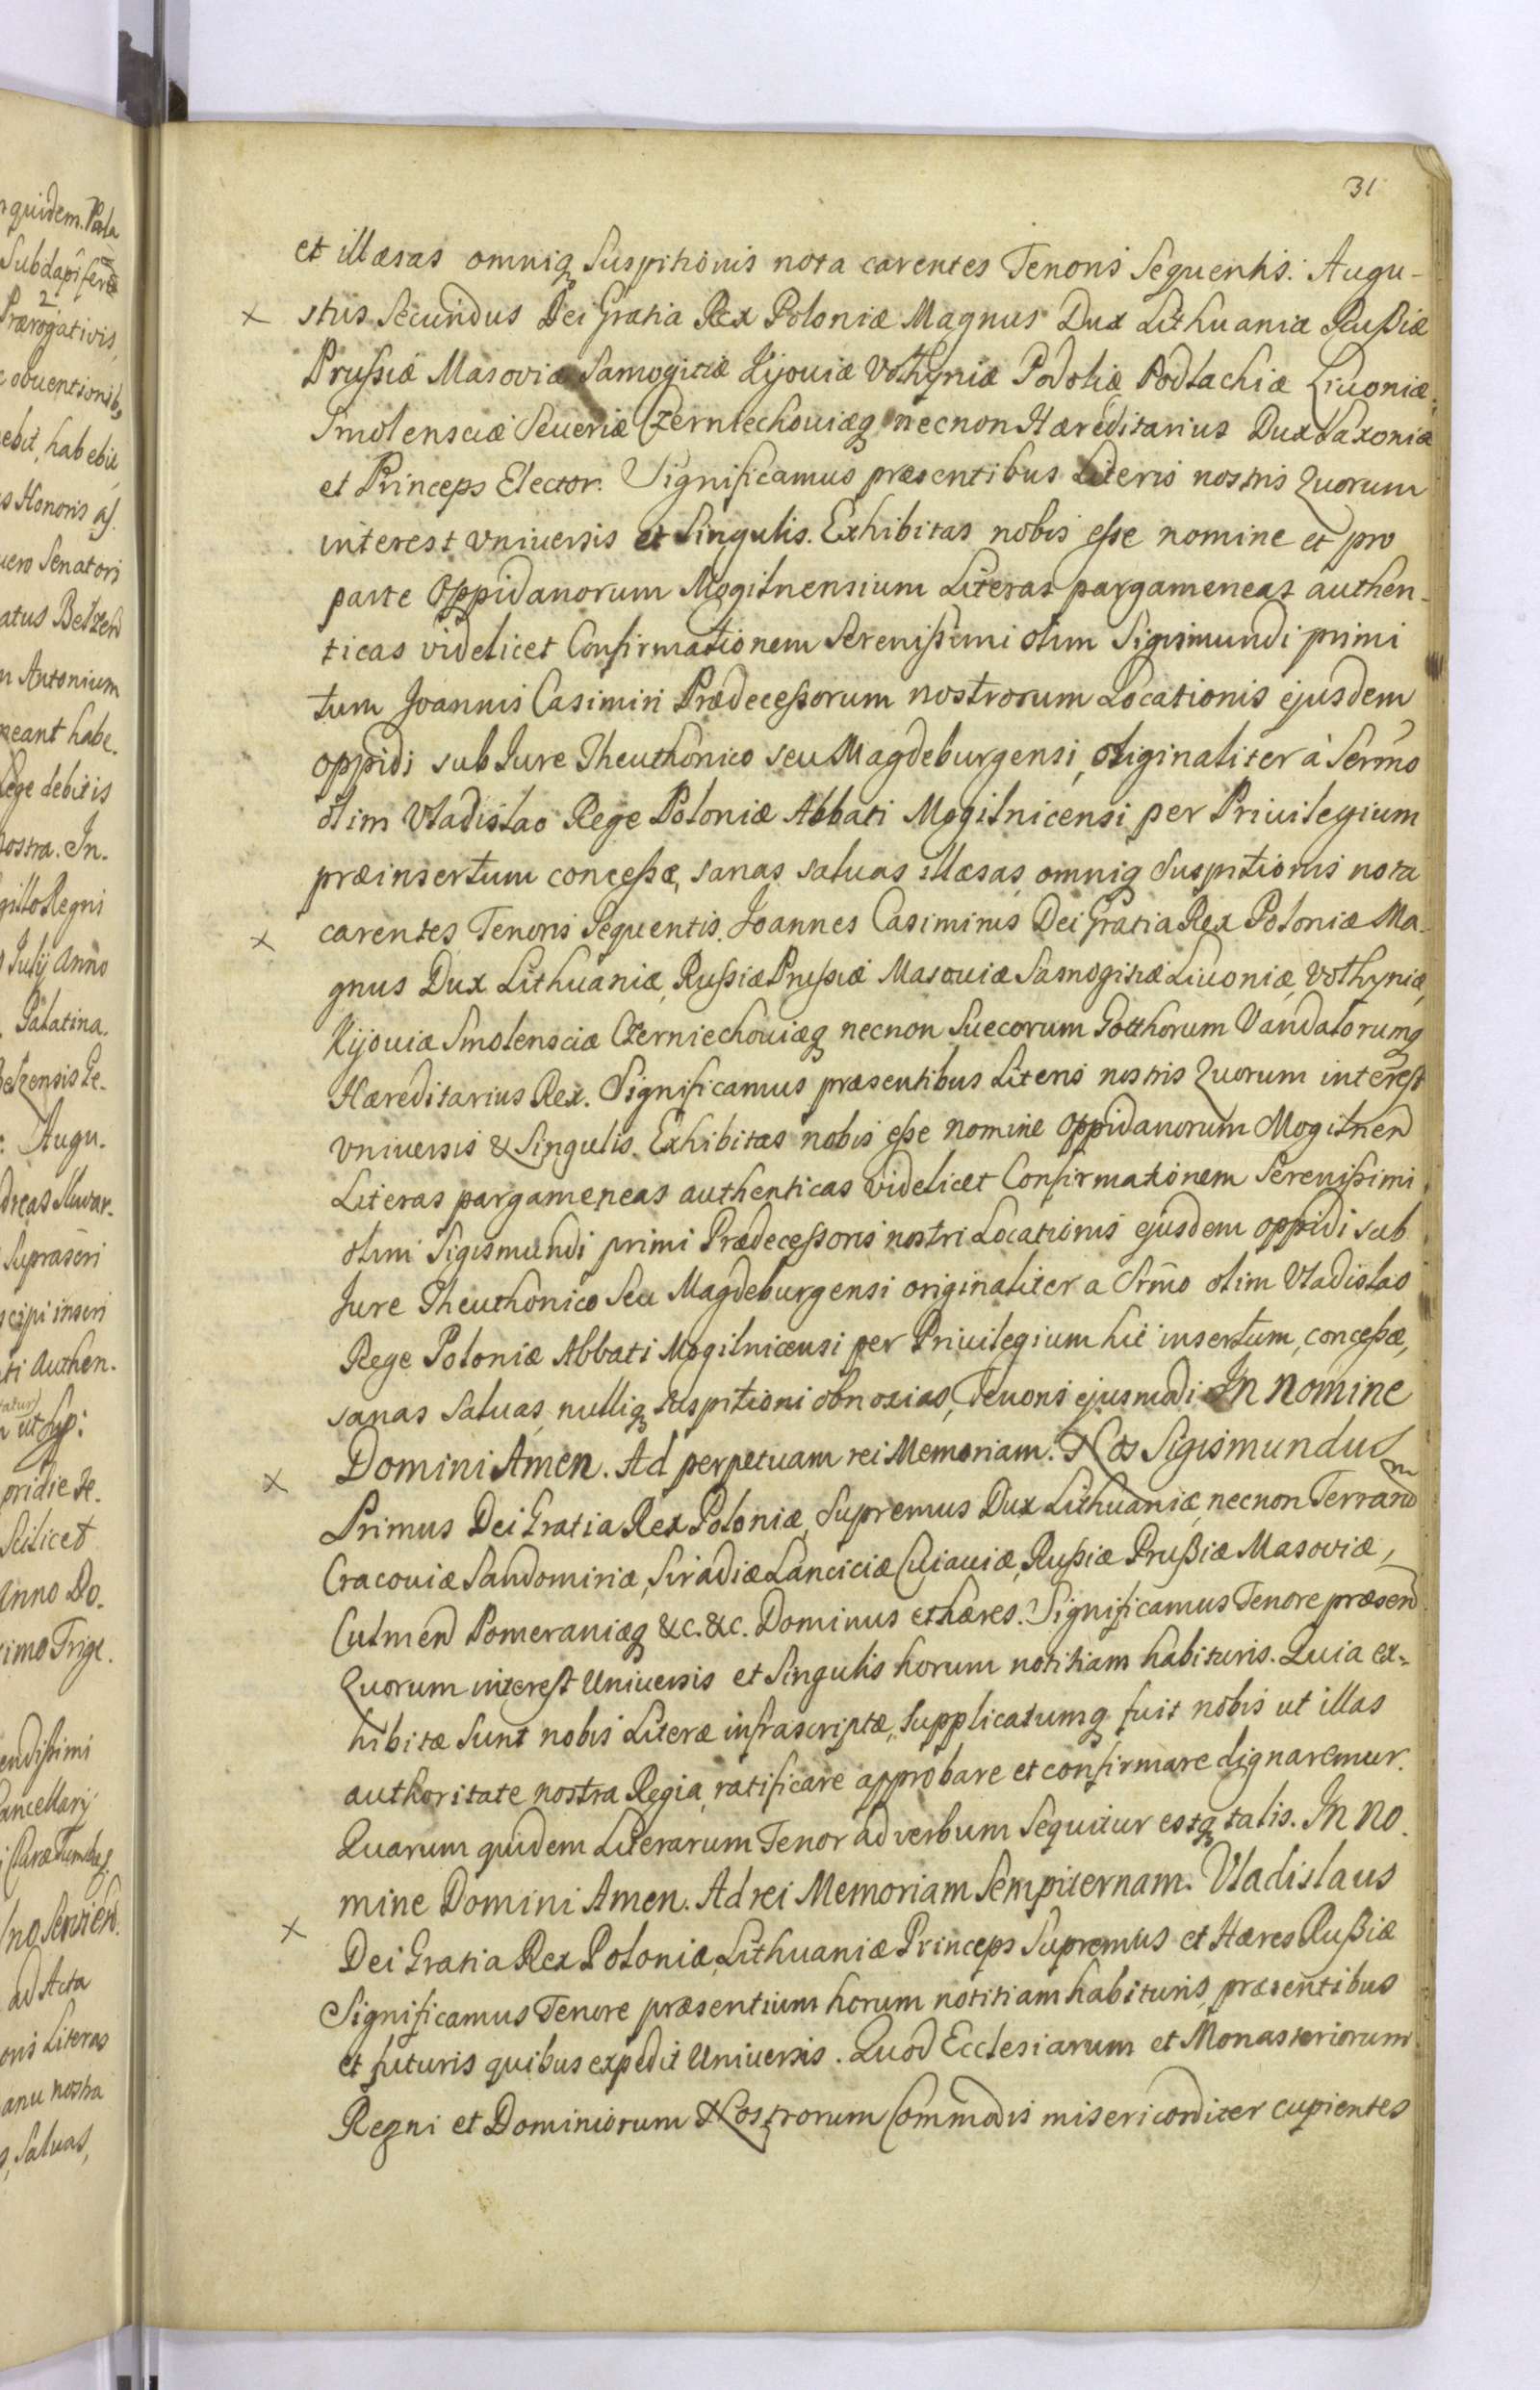 31
et illæsas omniq suspitionis nota carentes Tenoris Sequentis. Augu-
stus Secundus Dei Gratia Rex Poloniæ Magnus Dux Lithuaniæ Rußiæ
Prußiæ Masoviæ Samogitiæ Kijouiæ Volhyniæ Podoliæ Podlachiæ Liuoniæ,
Smolensciæ Seueriæ Czerniechouiæq necnon Hæreditarius Dux Saxoniæ
et Princeps Elector. Significamus præsentibus Literis nostris Quorum
interest vniuersis et Singulis. Exhibitas nobis eße nomine et pro
parte Oppidanorum Mogilnensium Literas pargameneas authen-
ticas videlicet Confirmationem Serenißimi olim Sigismundi primi
tum Joannis Casimiri Prædeceßorum nostrorum Locationis ejusdem
oppidi sub Iure Theuthonico seu Magdeburgensi, originaliter à Sermo
olim Vladislao Rege Poloniæ Abbati Mogilnicensi per Priuilegium
præinsertum conceßæ, sanas saluas illæsas, omniq suspitionis nota
carentes Tenoris Sequentis. Joannes Casimirus Dei Gratia Rex Poloniæ Ma-
gnus Dux Lithuaniæ, Rußiæ Prußiæ Masouiæ Samogitiæ Liuoniæ, Volhyniæ,
Kijouiæ Smolensciæ Czerniechouiæq necnon Suecorum Gotthorum Vandalorumq
Hæreditarius Rex. Significamus præsentibus Literis nostris Quorum interest
vniuersis & Singulis. Exhibitas nobis eße nomine Oppidanorum Mogilnen
Literas pargameneas authenticas videlicet Confirmationem Serenißimi
olim Sigismundi primi Prædeceßoris nostri Locationis ejusdem oppidi sub
Jure Theuthonico Seu Magdeburgensi originaliter a Srmo olim Vladislao
Rege Poloniæ Abbati Mogilnicensi per Priuilegium hic insertum, conceßæ,
sanas saluas, nulliq suspitioni obnoxias, Tenoris ejusmodi In Nomine
Domini Amen. Ad perpetuam rei Memoriam. Nos Sigismundus
Primus Dei Gratia Rex Poloniæ, Supremus Dux Lithuaniæ, necnon Terrarum
Cracouiæ Sandomiriæ, Siradiæ Lanciciæ Cuiauiæ, Rußiæ Prußiæ Masoviæ,
Culmen Pomeraniæq &c. &c. Dominus et hæres. Significamus Tenore præsen
Quorum interest Uniuersis et Singulis horum notitiam habituris. Quia ex-
hibitæ sunt nobis Literæ infrascriptæ, supplicatumq fuit nobis ut illas
authoritate nostra Regia, ratificare approbare et confirmare dignaremur.
Quarum quidem Literarum Tenor ad verbum Sequitur estq talis. In no-
mine Domini Amen. Ad rei Memoriam Sempiternam. Vladislaus
Dei Gratia Rex Poloniæ, Lithuaniæ Princeps Supremus et Hæres Rußiæ
Significamus Tenore præsentium horum notitiam habituris, præsentibus
et futuris quibus expedit Uniuersis. Quod Ecclesiarum et Monasteriorum
Regni et Dominiorum Nostrorum Commodis misericorditer cupientes